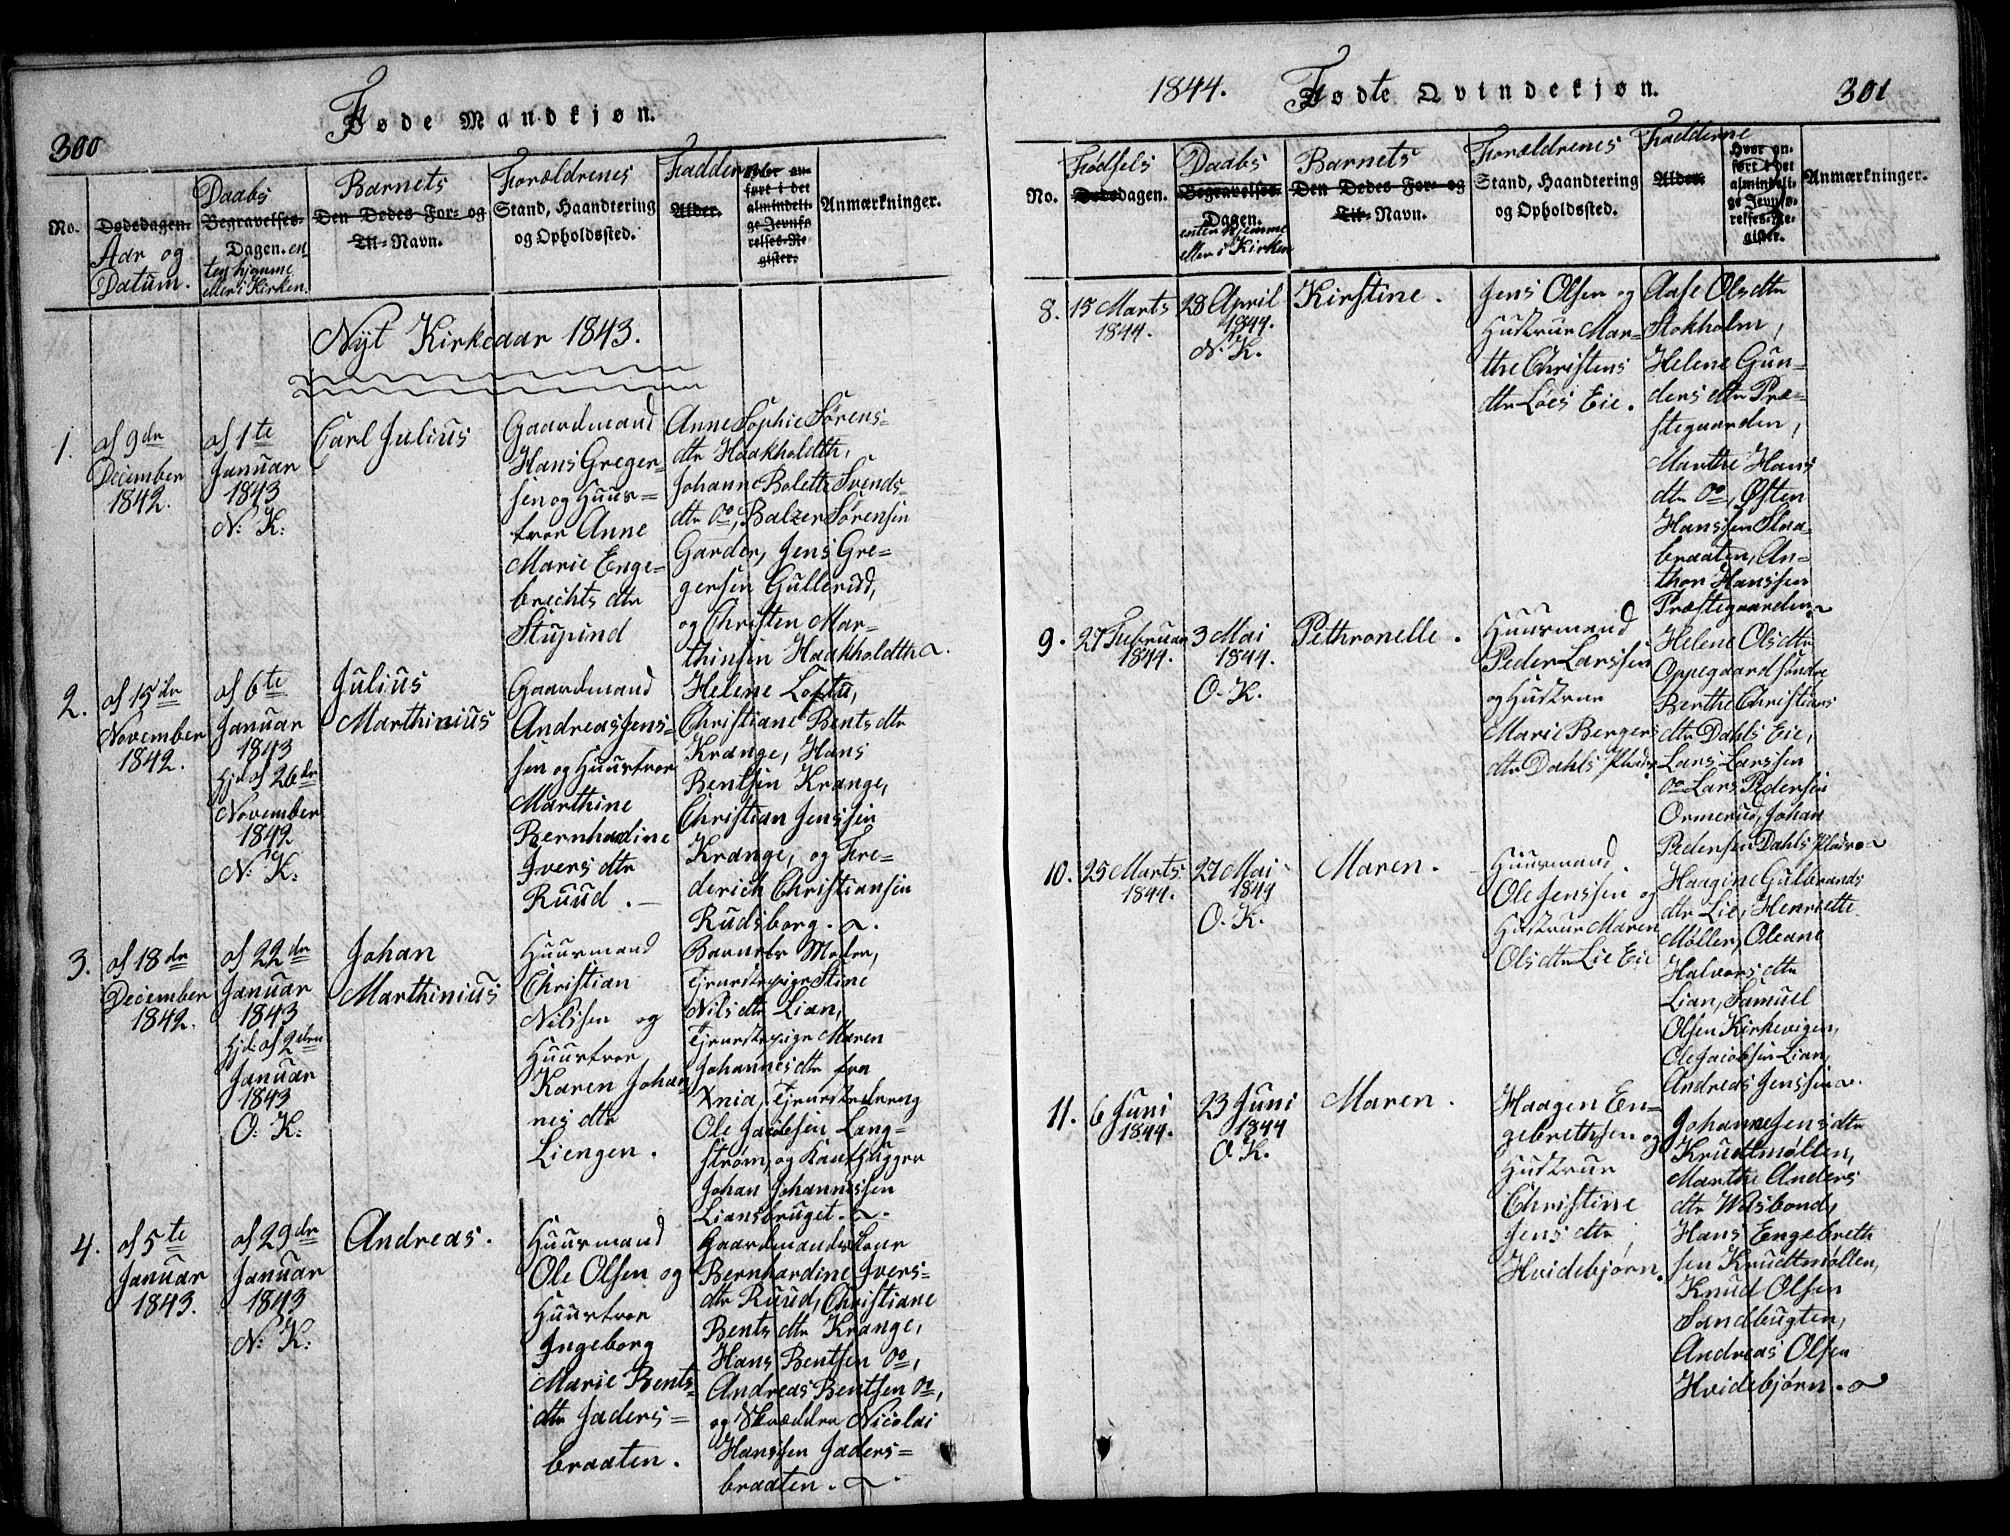 300
Føde Mandkjøn.
No.
Dødedagen.
Aar og
Datum.
Daabs
Begravelses-
Dagen. en
ten hjemme
eller i Kirken.
Barnets
Den Dødes For- og
Til-Navn.
Forældrenes
Stand, Haandtering
og Opholdssted.
Fadderne
Alder.
Hvor an-
ført i det
almindeli-
ge Jevnfø-
relses-Re-
gister.
Anmærkninger.
Nÿt Kirkeaar 1843.
1.
af 9de
December
1842.
af 1te
Januar
1843
N: K:
Carl Julius
Gaardmand
Hans Greger-
sen og Huus-
troe Anne
Marie Enge-
brechts dtr
Stupind
Anne Sophie Sørens-
dtr Haakholdth,
Johanne Bolette Svends-
dtr do, Balzer Sørensen
Garder, Jens Gre-
gersen Gullerud,
og Christen Mar-
thinsen Haakholdth.
2.
af 15de
November
1842.
af 6te
Januar
1843
hjd. af 26de
November
1842
N: K:
Julius
Marthinius
Gaardmand
Andreas Jens-
sen og Huustroe
Marthine
Bernhardine
Ivers dtr
Ruud.
Helene Loftu,
Christiane Bents dtr
Krange, Hans
Bentsen Krange,
Christian Jenssen
Krange, og Fre-
derich Christiansen
Rudsborg.
3.
af 18de
December
1842.
af 22de
Januar
1843
hjd. af 2den
Januar
1843
O: K:
Johan
Marthinius
Huusmand
Christian
Nilssen og
Huustroe
Karen Johan
nes dtr
Liengen.
Barnets Moder,
Tjenestepige Stine
Nils dtr Lian,
Tjenestepige Maren
Johannes dtr fra
Xnia, Tjenestedreng
Ole Jacobsen Lang-
strøm, og
Johan Johannessen
Liansbruget.
4.
af 5te
Januar
1843.
af 29de
Januar
1843
N: K:
Andreas.
Huusmand
Ole Olsen og
Huustroe
Ingeborg
Marie Bents-
dtr Jaders-
braaten.
Gaardmandskone
Bernhardine Ivers-
dtr Ruud, Christiane
Bents dtr Krange,
Hans Bentsen do,
Andreas Bentsen do,
og Skrædder Nicolai
Hanssen Jaders-
braaten.
1844.
Fødte Qvindekjøn.
301
No.
Fødsels
Dødedagen.
Daabs
Begravelses-
Dagen.
enten hjemme
eller i Kirken
Barnets
Den Dødes For- og
Til-Navn.
Forældrenes
Stand, Haandtering
og Opholdssted.
Fadderne
Alder.
Hvor an-
ført i det
almindeli-
ge Jevnfø-
relses-Re-
gister.
Anmærkninger.
8.
15 Marts
1844.
28 April
1844.
N. K.
Kirstine.
Jens Olsen og
Hustrue Mar-
the Christens
dtr Løes Eie.
Aase Olsdtr
Stokholm,
Helene Gun-
ders dtr Præ-
stegaarden,
Marthe Hans
dtr do, Østen
Hanssen Slaa-
braaten, An-
thor Hanssen
Præstegaarden
9.
27 Februar
1844.
3 Mai
1844.
O. K.
Pethronelle.
Huusmand
Peder Larssen
og Hustrue
Marie Bergers
dtr Dahls Plads.
Helene Olsdtr
Oppegaard søndre
Berthe Christians
dtr Dahls Eie,
Lars Larssen
do Lars Pedersen
Ormerud, Johan
Pedersen Dahls Plads
10.
25 Marts
1844.
27 Mai
1844
O. K.
Maren.
Huusmand
Ole Jenssen og
Hustrue Maren
Ols dtr Lie Eie
Haagine Gulbrands
dtr Lie, Henriette
Møller, Oleane
Halvors dtr
Lian, Samuel
Olsen Kirkevigen,
Ole Jacobsen Lian,
Andreas Jenssen
11.
6 Juni
1844.
23 Juni
1844
O. K.
Maren.
Haagen En-
gebrethsen og
Hustrue
Christine
Jens dtr
Hvidebjørn.
Johanne Jens dtr
Krudtmøllen,
Marthe Anders
dtr Wasbond,
Hans Engebreth
sen Krudtmøllen,
Knud Olsen
Sandbugten,
Andreas Olsen
Hvidebjørn.